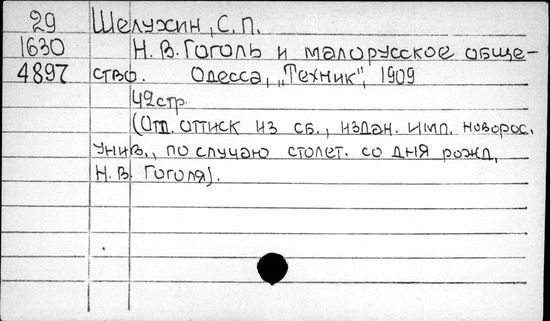 29 Шелухин, С. П.
1630 Н. В. Гоголь и малорусское обще-
4897 ство. Одесса, „Техник", 1909
42 стр.
(Отд. оттиск из сб., издан. Имп. Новорос.
Унив., по случаю столет. со дня рожд.
Н. В. Гоголя).